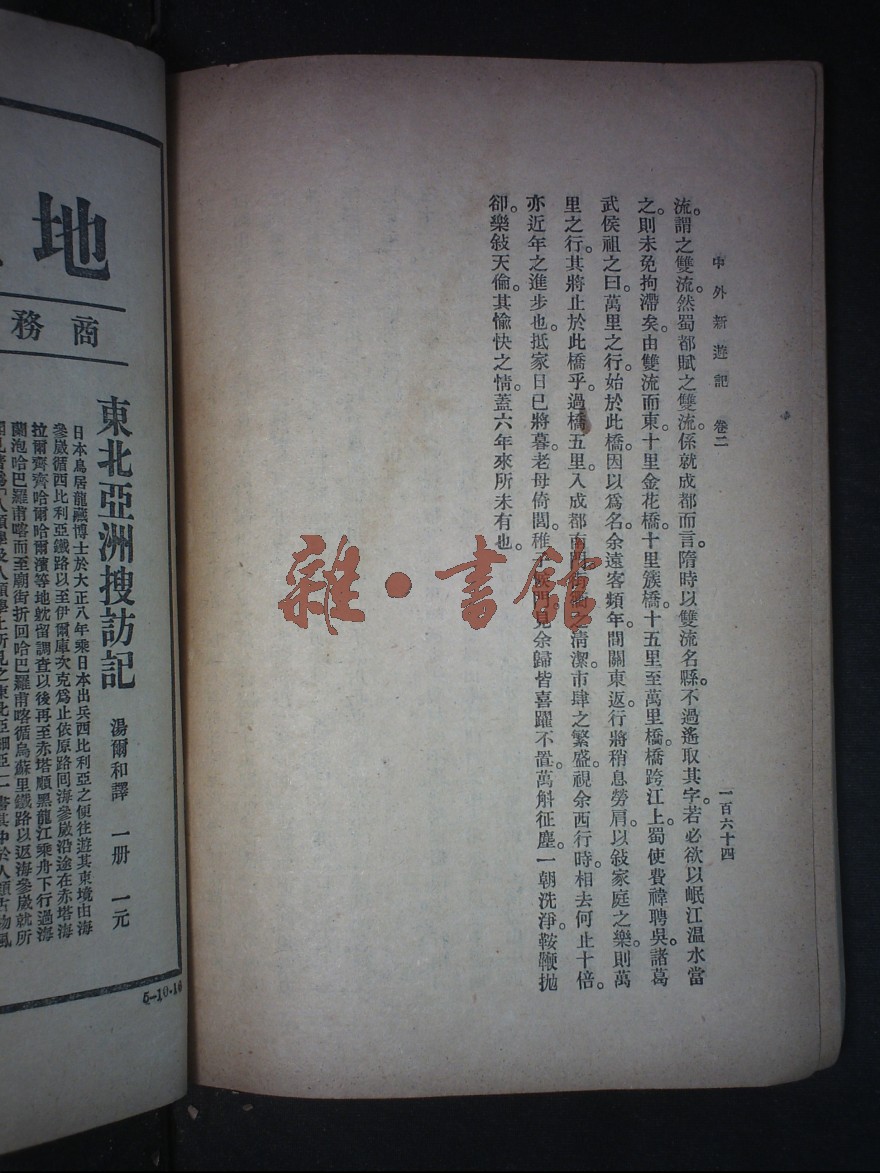 中外新遊記 卷二 一百六十四
流。謂之雙流。然蜀都賦之雙流。係就成都而言。隋時以雙流名縣。不過遙取其字。若必欲以岷江温水當
之。則未免拘滯矣。由雙流而東。十里金花橋。十里簇橋。十五里至萬里橋。橋跨江上。蜀使費禕聘吳。諸葛
武侯祖之曰。萬里之行。始於此橋。因以爲名。余遠客頻年。間關東返。行將稍息勞肩。以敍家庭之樂。則萬
里之行。其將止於此橋乎。過橋五里。入成都南門。街衢之清潔。市肆之繁盛。視余西行時。相去何止十倍。
亦近年之進步也。抵家日已將暮。老母倚閭。稚子候門。見余歸皆喜躍不置。萬斛征塵。一朝洗淨。鞍鞭拋
卻。樂敍天倫。其愉快之情。蓋六年來所未有也。
雜·書館
地
商務
東北亞洲搜訪記 湯爾和譯 一册 一元
日本鳥居龍藏博士於大正八年乘日本出兵西比利亞之便往遊其東境由海
參崴循西比利亞鐵路以至伊爾庫次克爲止依原路回海參崴沿途在赤塔海
拉爾齊齊哈爾哈爾濱等地躭留調查以後再至赤塔順黑龍江乘舟下行過海
蘭泡哈巴羅甫喀而至廟街折回哈巴羅甫喀循烏蘇里鐵路以返海參崴就所
人類學上所見之東北亞細亞一書其中於人類古物風
5-10·16